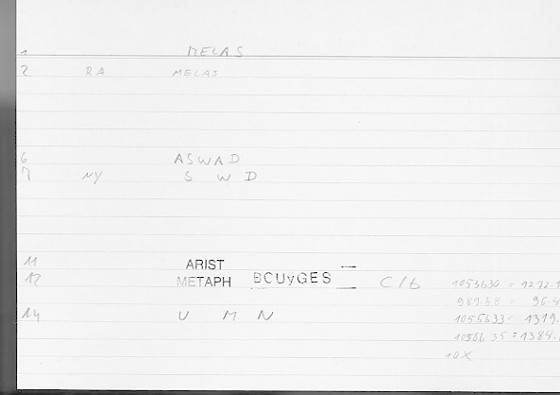 1 MELAS
2 RA MELAS
6 ASWAD
7 NY S W D
11 ARIST
12 METAPH BCUyGES C/b 1053b30 = 1272.1
= 96.4
14 U M N 1055b33 = 1319.
1056b35 = 1384.
10X